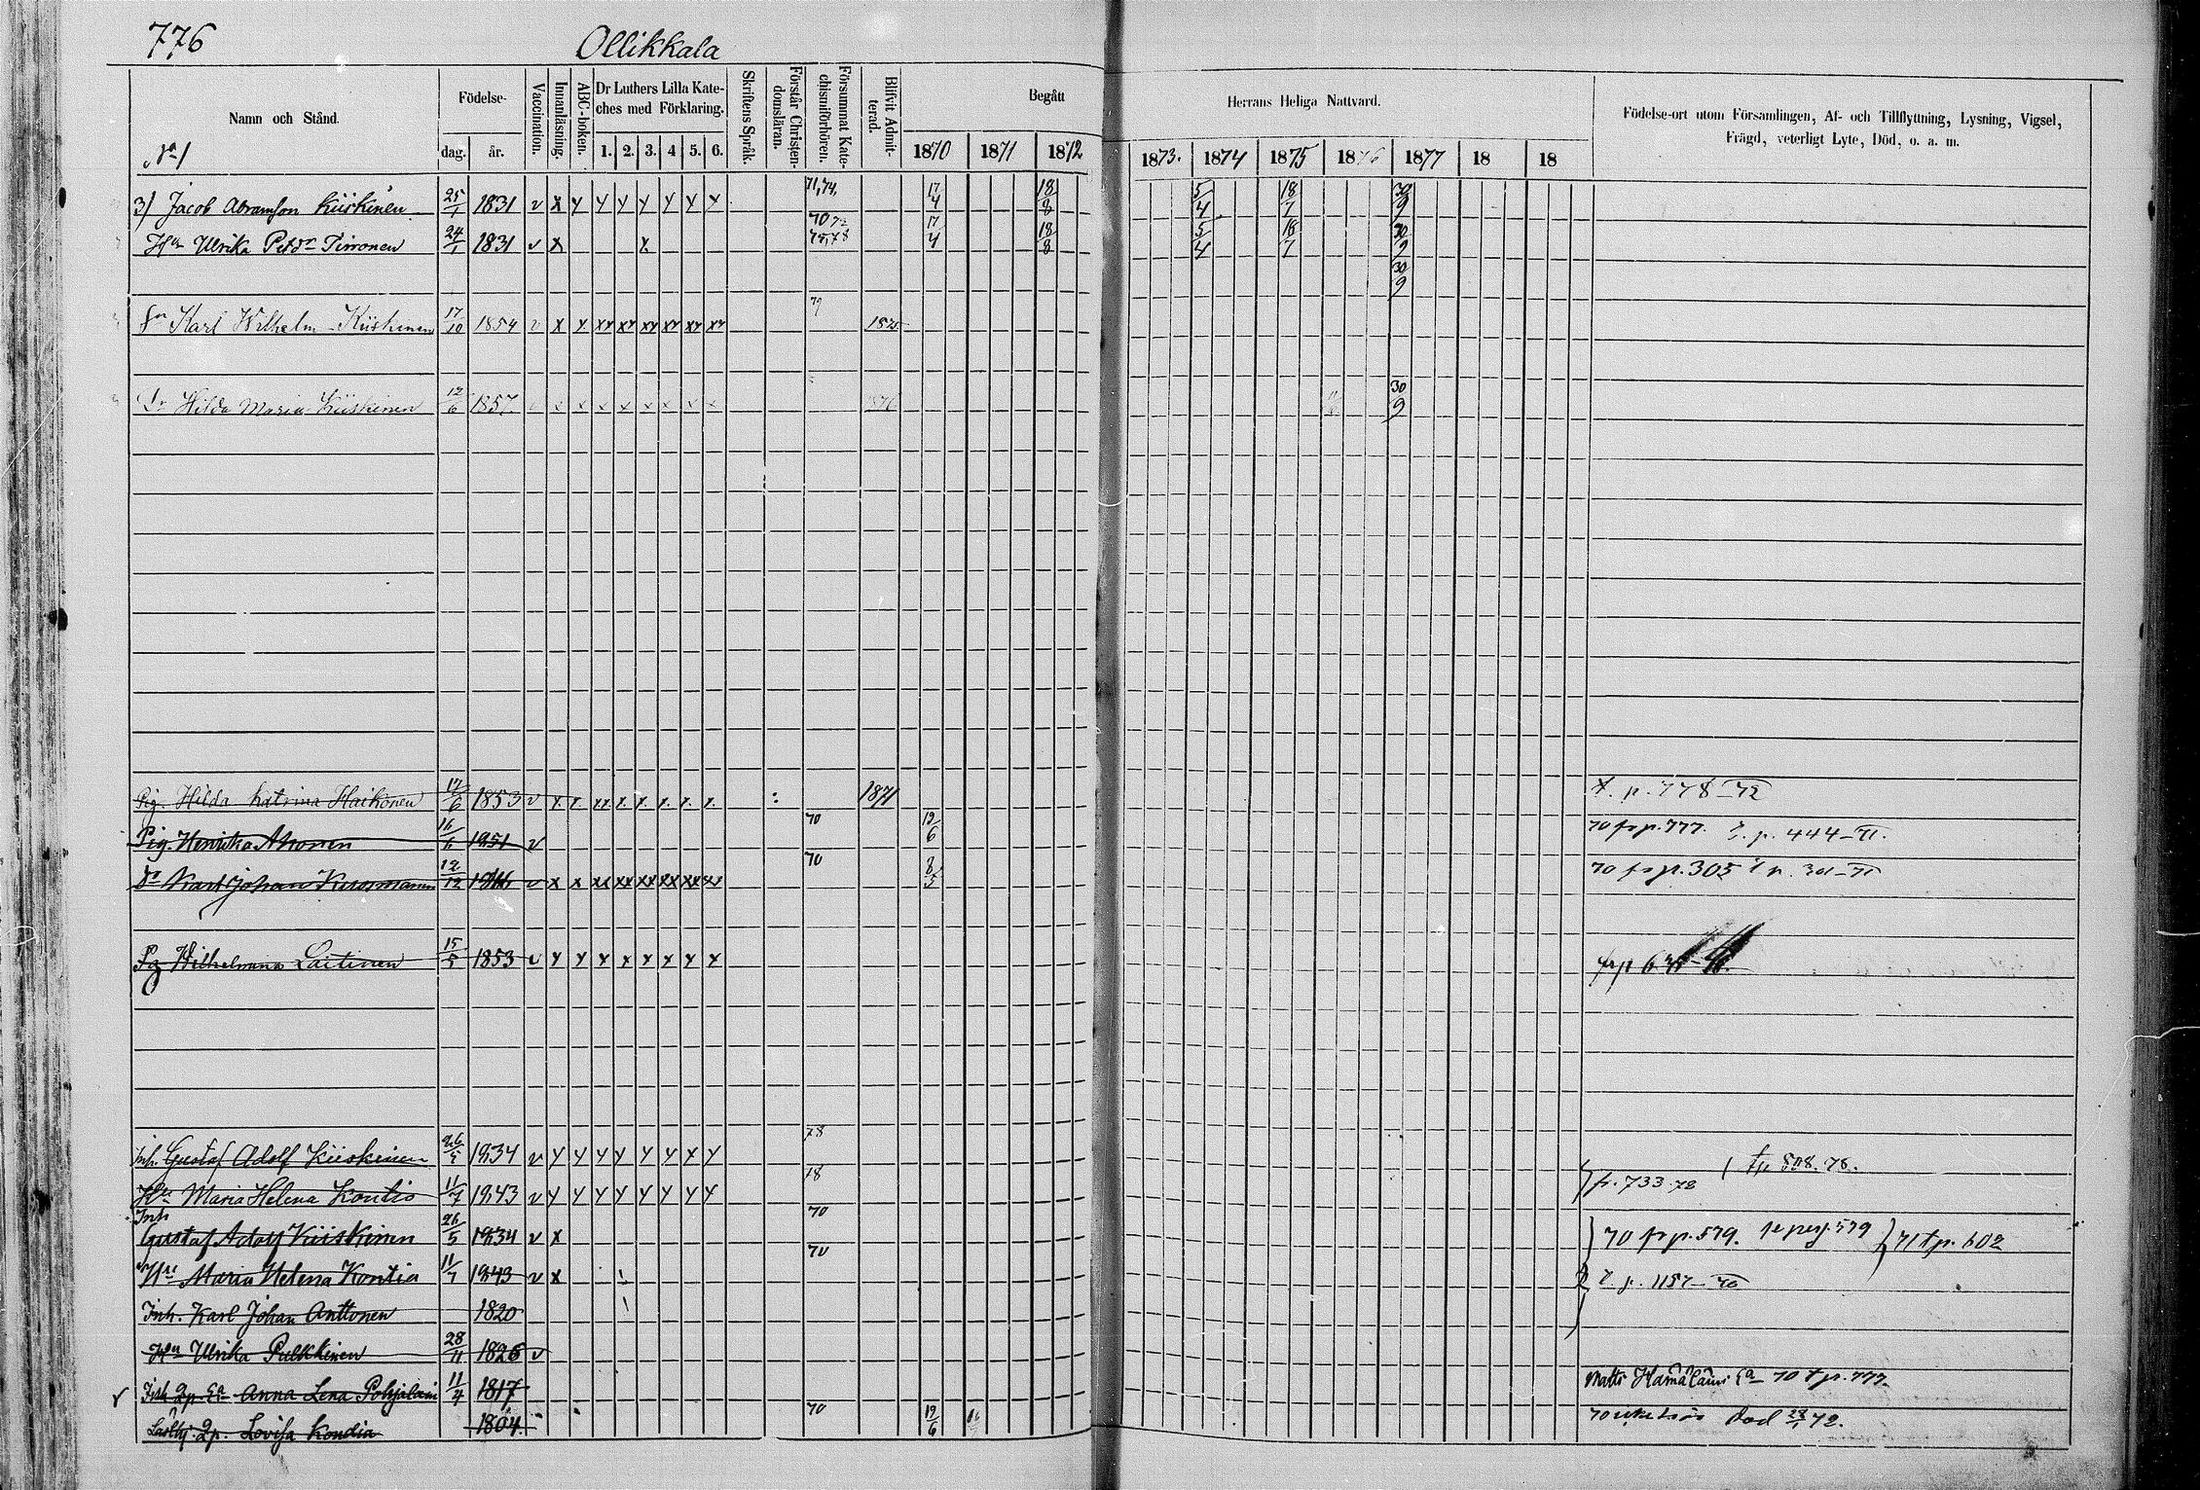 776
Ollikkala
Namn och Stånd.
Födelse-
dag.
år.
Vaccination.
Innanläsning.
ABC-boken.
Dr Luthers Lilla Kate-
ches med Förklaring.
1. 2. 3. 4 5. 6.
Skriftens Språk.
Förstår Christen-
domsläran.
Försummat Kate-
chismiförhören.
Blifvit Admit-
terad.
Begått
1870 1871 1872
Herrans Heliga Nattvard.
1873. 1874 1875 1876 1877 18 18
Födelse-ort utom Församlingen, Af- och Tillflyttning, Lysning, Vigsel,
Frägd, veterligt Lyte, Död, o. a. m.
No 1
3) Jacob Abramsson Kiiskinen 25/1 1831 v x y y y y y y y 71,74. 17/4 18/8 5/4 18/7 30/9
Hu Ulrika Petdr Pirronen 24/1 1831 v x x 70 73 75,78 17/4 18/8 5/4 18/7 30/9
30/9
Sn Karl Wilhelm Kiiskinen 17/10 1854 v x x xx xx xx xx xx xx 79 1875
Dr Hilda Maria Kiiskinen 12/6 1857 x x x x x x x x 1876 30/9
Pig. Hilda Katrina Haikonen 17/6 1853 v x x xx x x x x x 1871 t. p. 778-72
Pig. Henrika Ahonen 16/6 1851 v 70 12/6 70 fr p. 777. t. p. 444-71.
Dr Karl Johan Kuosmanen 12/12 v x x xx xx xx xx xx xx 70 8/5 70 fr p. 305 t p. 301-71
Pg Wilhelmina Laitinen 15/5 1853 v y y x x x x x x fr p
Inh. Gustaf Adolf Kiiskinen 26/5 1834 v y y y y y y x y 78 tp 508. 78.
Hu Maria Helena Kontio 11/7 1843 v y y y y y y y y 78 p. 733. 78
Inh
Gustaf Adolf Kiiskinen 26/5 1834 v x 70 70 fr p. 579. 71 t p. 602
Hu Maria Helena Kontia 11/7 1843 v x 70 t p. 1157-70
Inh. Karl Johan Anttonen 1820
Hu Ulrika Pulkkinen 28/11 1826 v
Inh Qp Ea Anna Lena Pohjalain 11/4 1817 Matts Hämäläins Ea 70 t p. 777.
Lösthj. Qp. Lovisa Kondia 1804. 70 12/6 Död 72.